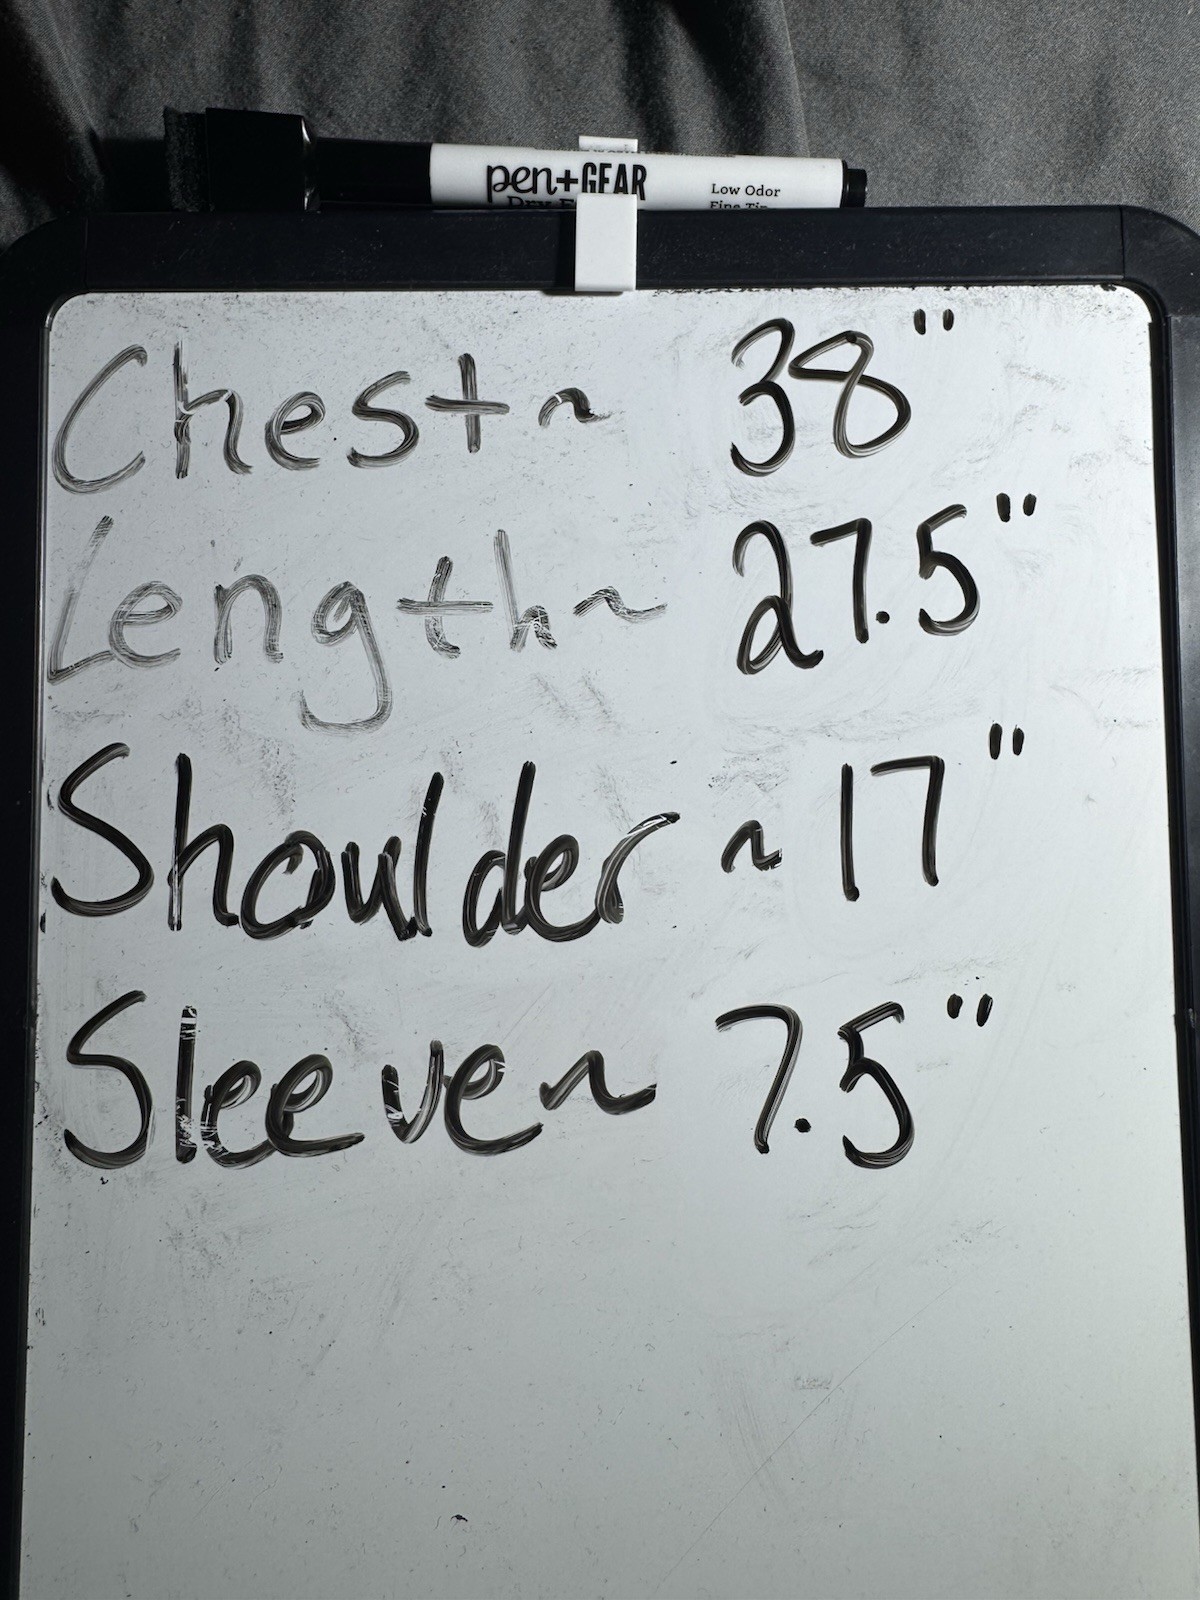 pen+GEAR
Low Odor
Fine Tip
Chest ~ 38"
Length ~ 27.5"
Shoulder ~ 17"
Sleeve ~ 7.5"